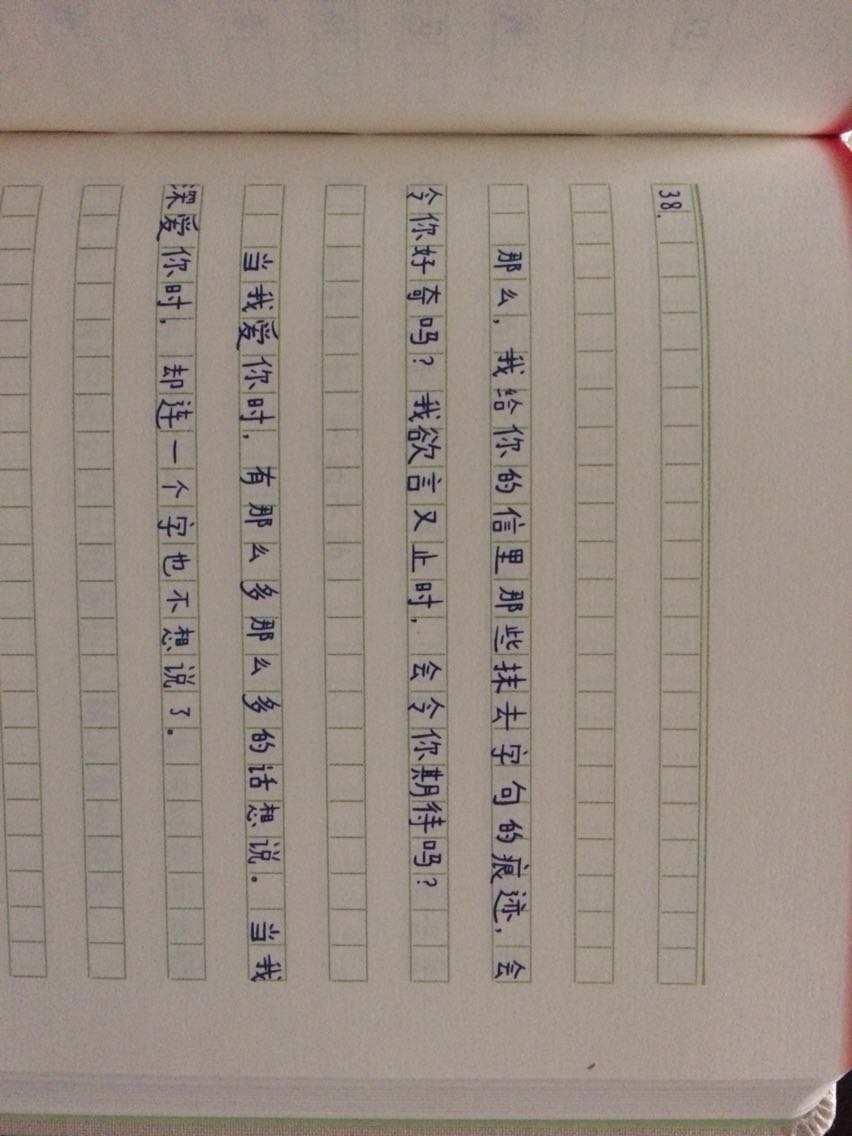 38.
那么，我给你的信里那些抹去字句的痕迹，会
令你好奇吗？我欲言又止时，会令你期待吗？
当我爱你时，有那么多那么多的话想说。当我
深爱你时，却连一个字也不想说了。